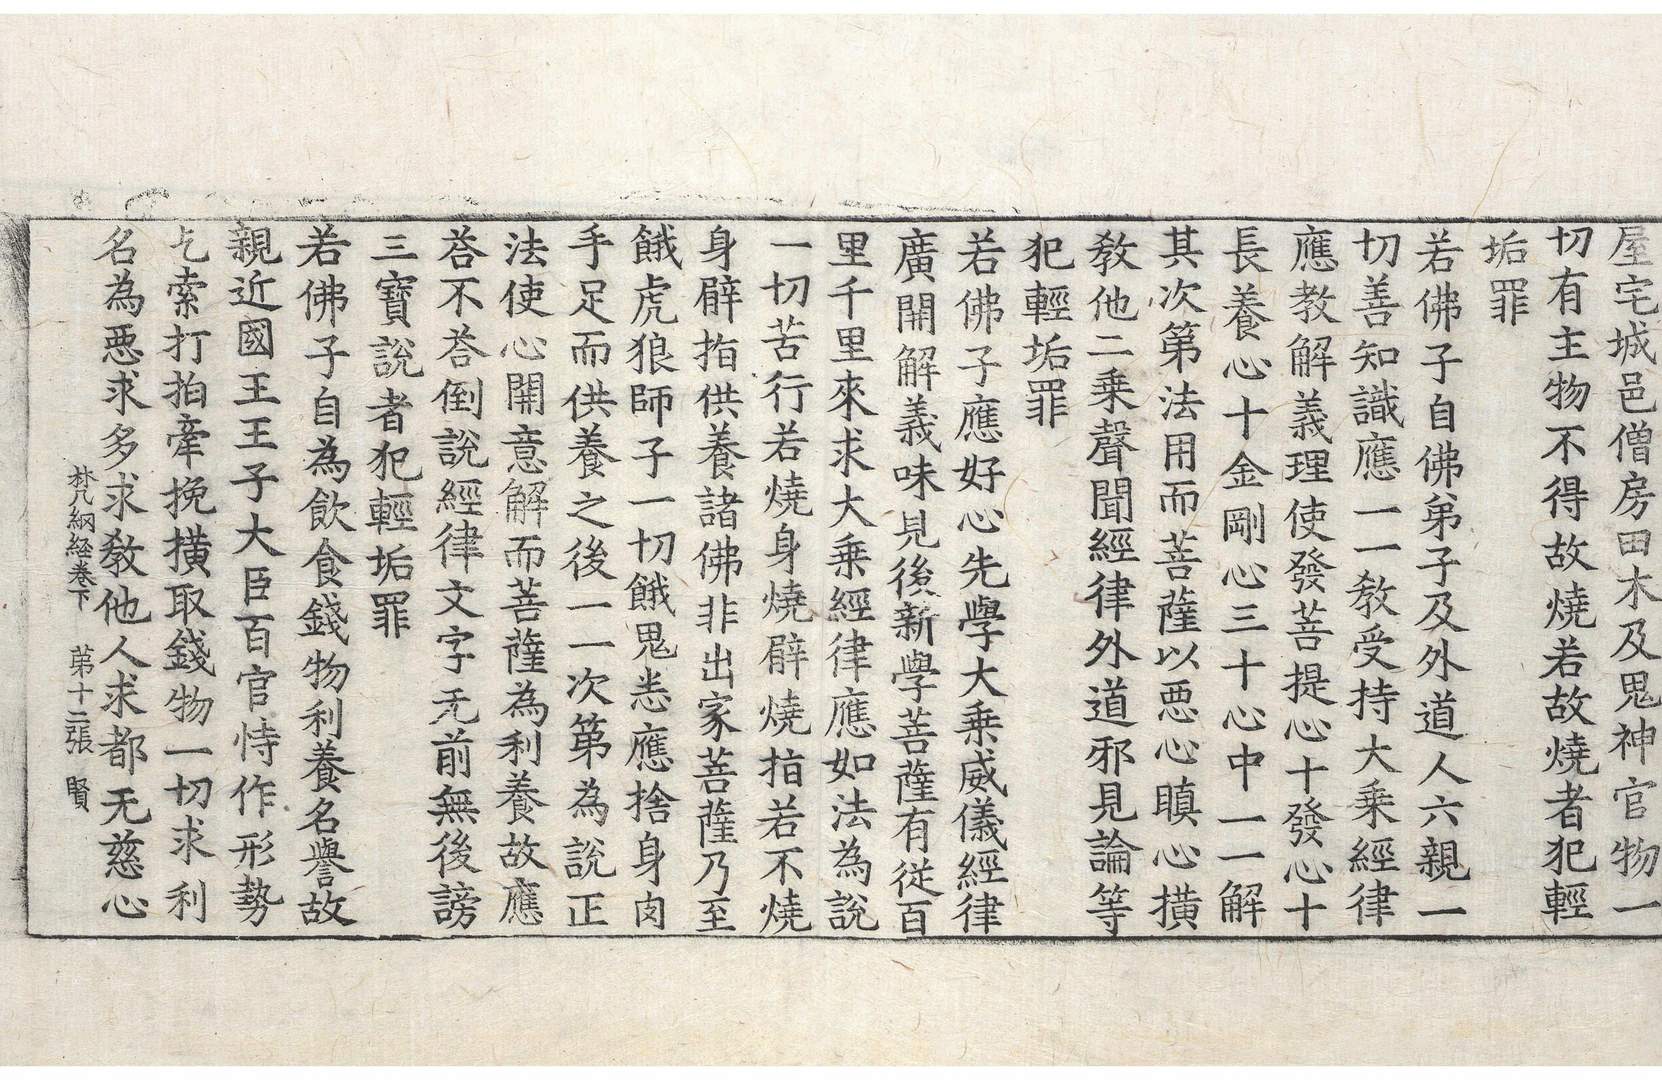 屋宅城邑僧房田木及鬼神官物一
切有主物不得故燒若故燒者犯輕
垢罪
若佛子自佛弟子及外道人六親一
切善知識應一一教受持大乘經律
應教解義理使發菩提心十發心十
長養心十金剛心三十心中一一解
其次第法用而菩薩以惡心瞋心橫
教他二乘聲聞經律外道邪見論等
犯輕垢罪
若佛子應好心先學大乘威儀經律
廣開解義味見後新學菩薩有從百
里千里來求大乘經律應如法為說
一切苦行若燒身燒臂燒指若不燒
身臂指供養諸佛非出家菩薩乃至
餓虎狼師子一切餓鬼悉應捨身肉
手足而供養之後一一次第為說正
法使心開意解而菩薩為利養故應
荅不荅倒說經律文字无前無後謗
三寶說者犯輕垢罪
若佛子自為飲食錢物利養名譽故
親近國王王子大臣百官恃作形勢
乞索打拍牽挽橫取錢物一切求利
名為惡求多求教他人求都无慈心
梵網経卷下 苐十二張 賢